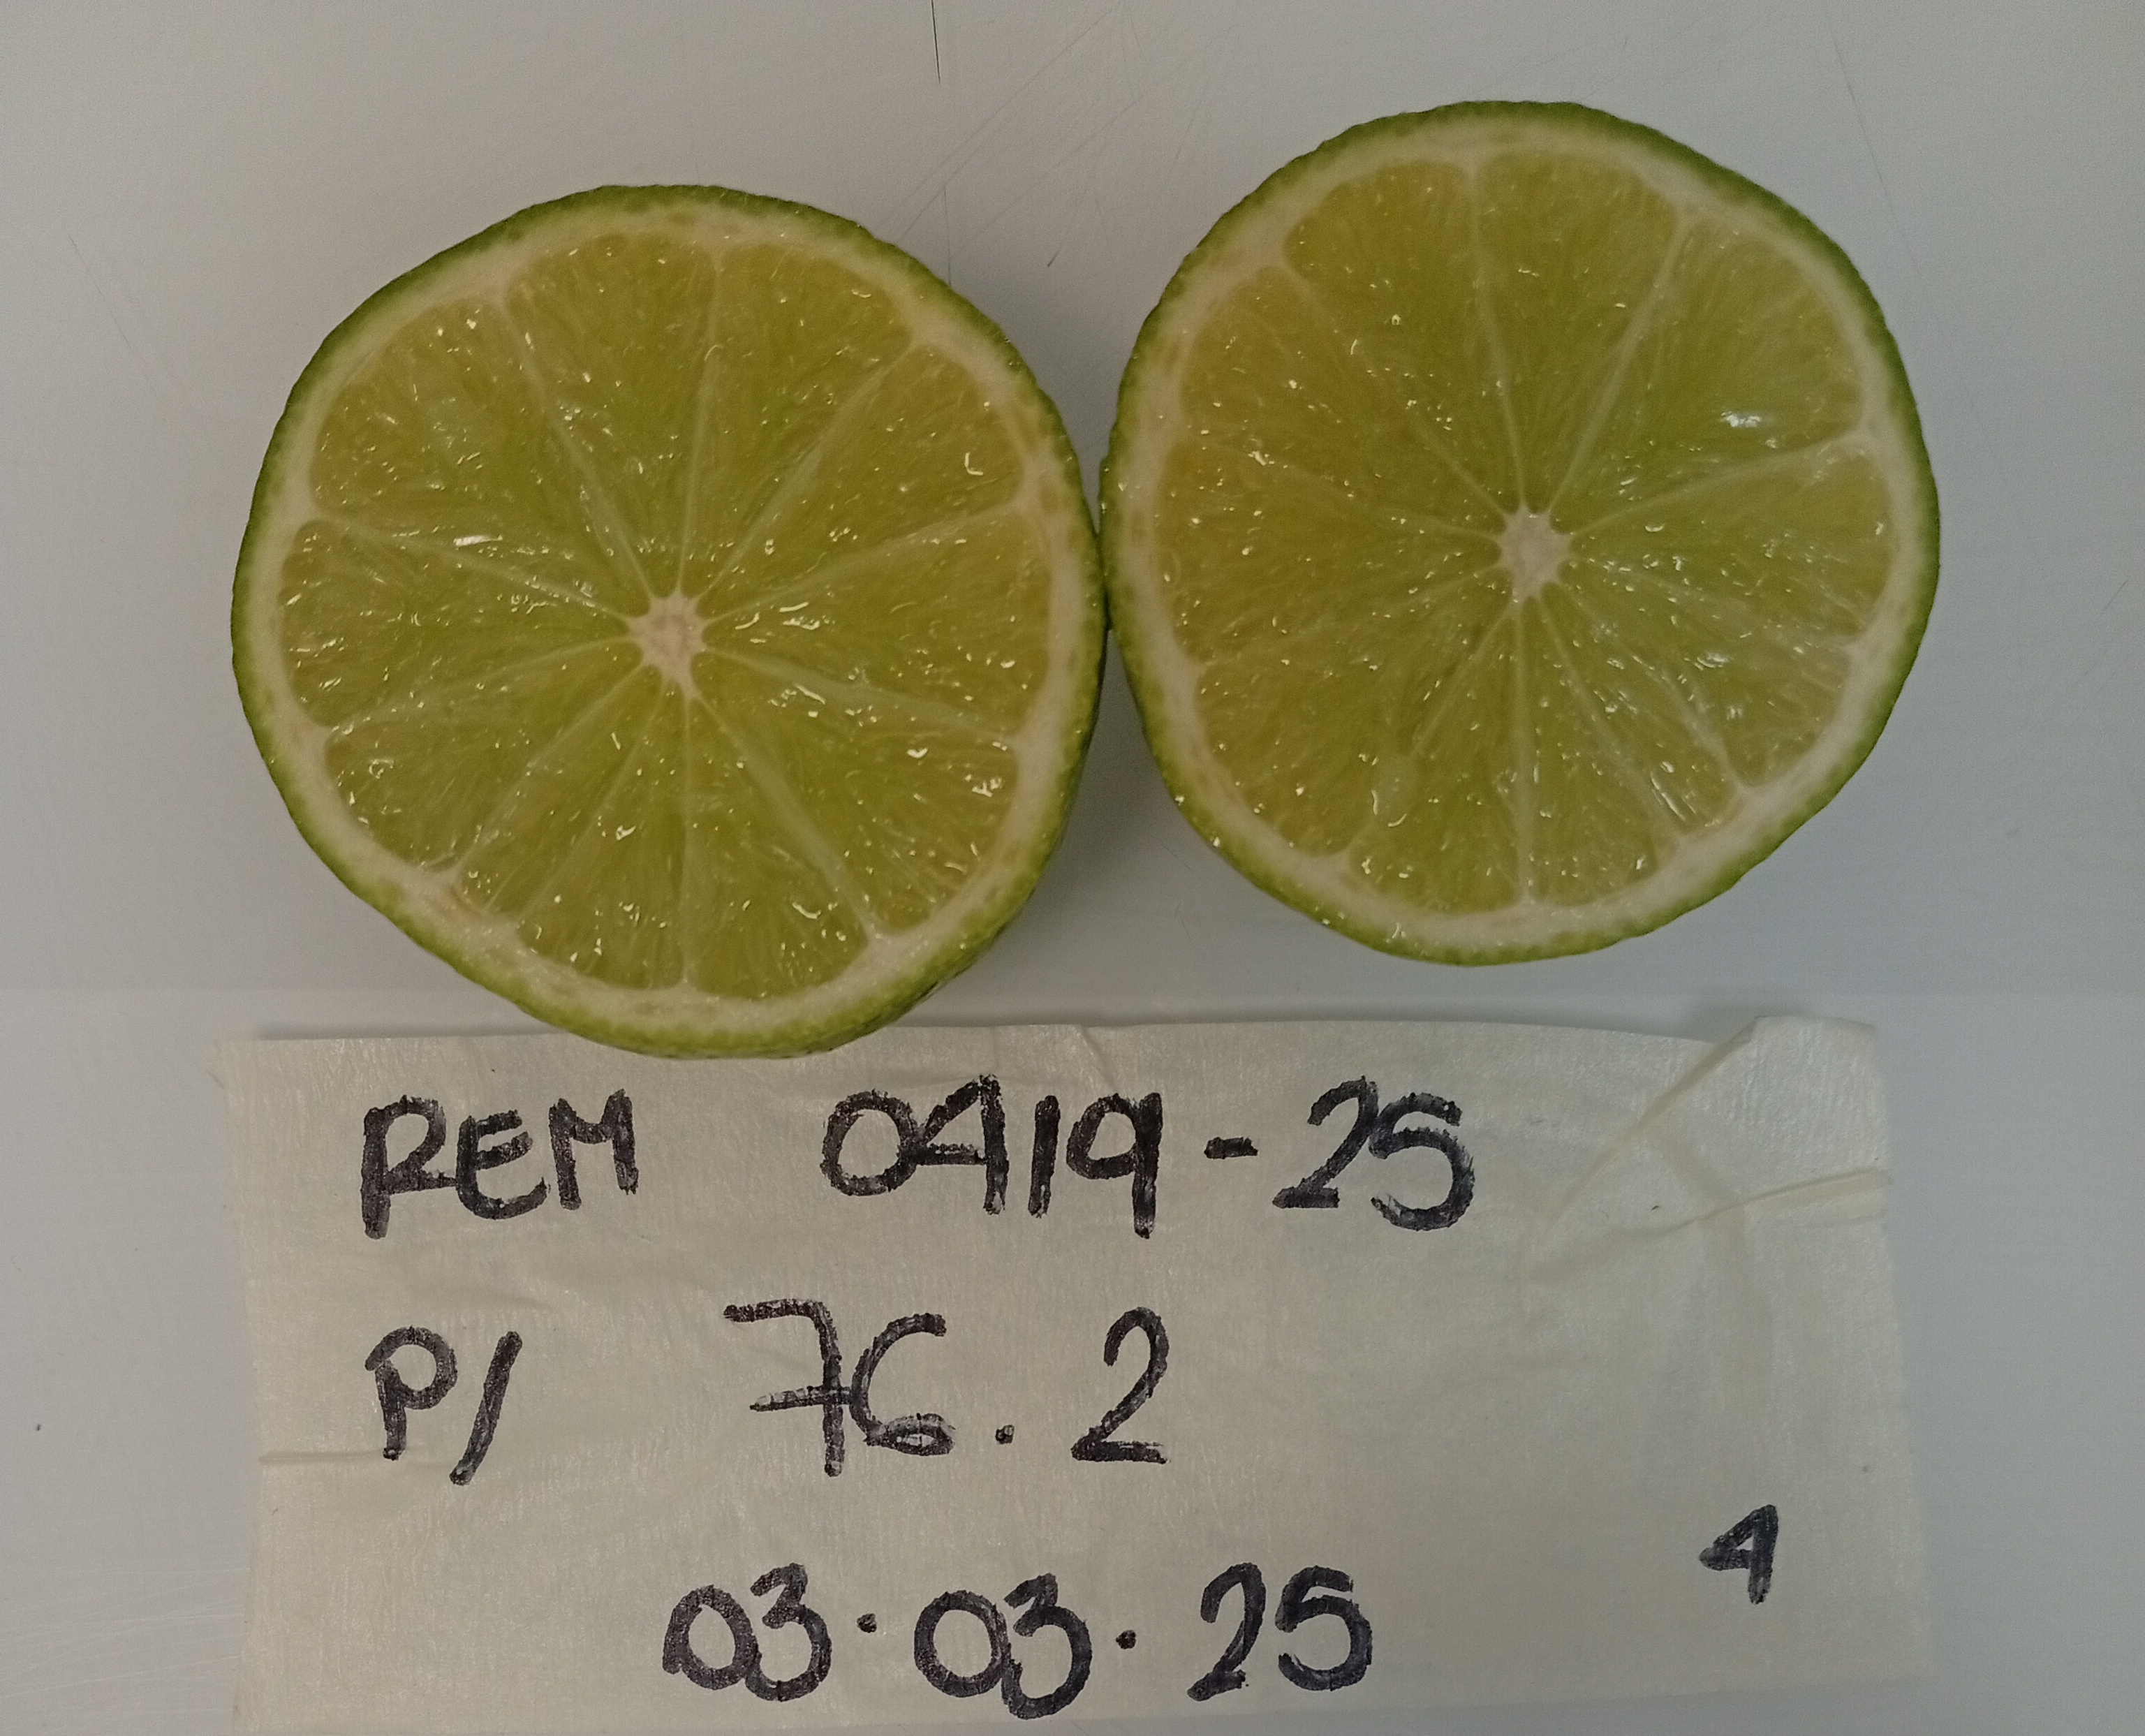 REM 0419-25
P/ 76.2
4
03.03.25